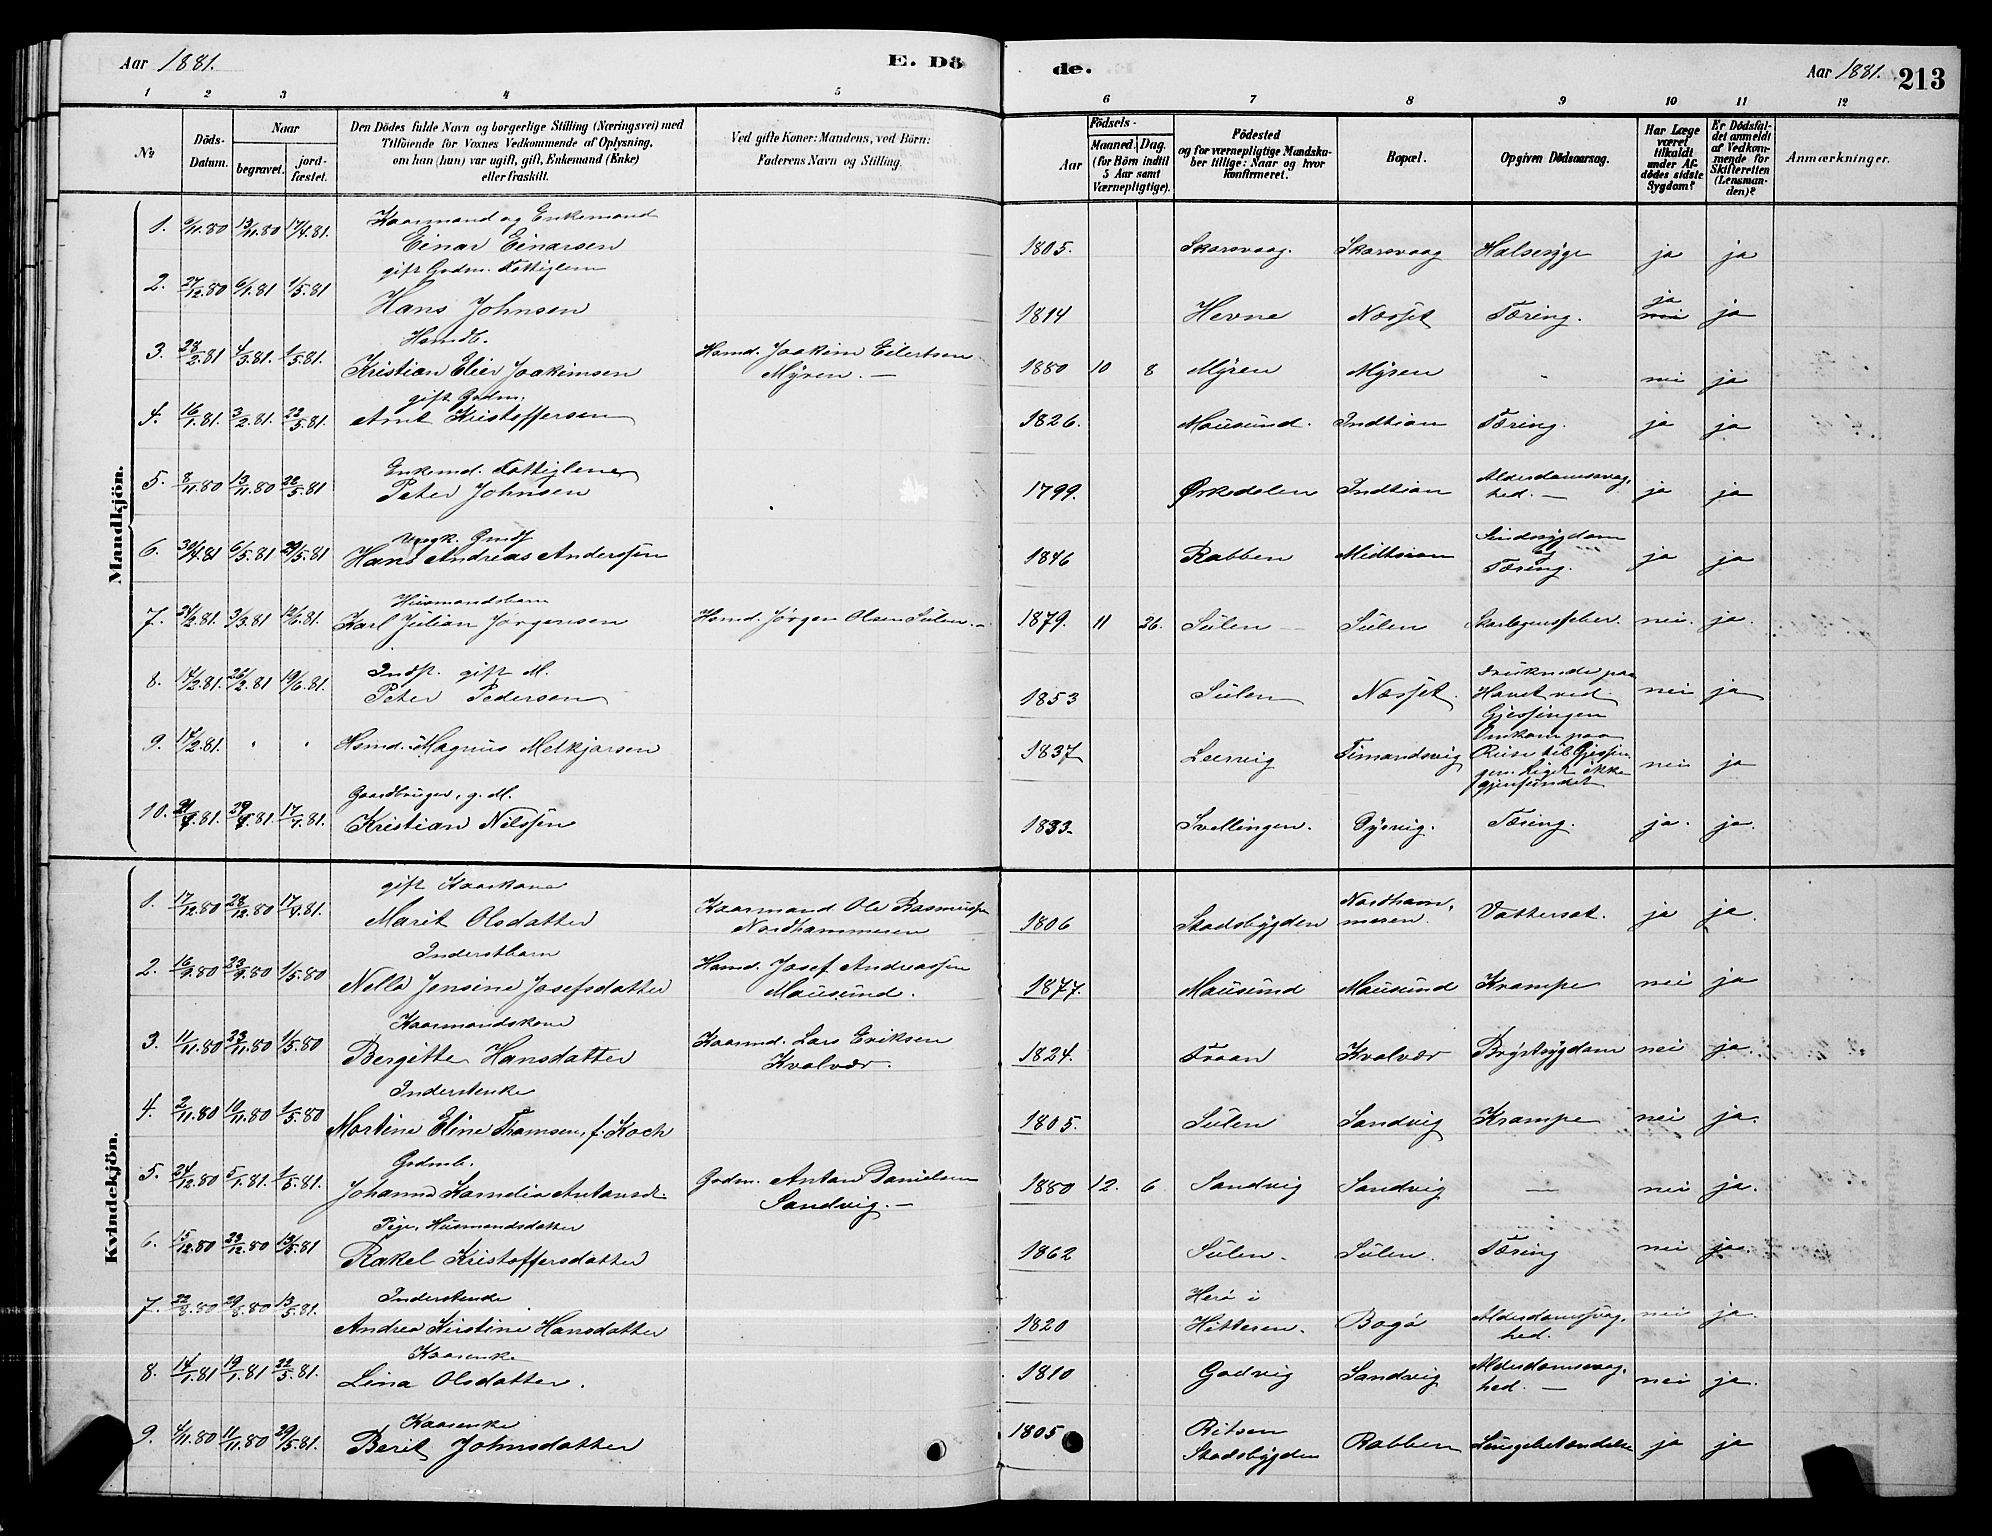 Aar 1881.
E. Dö
de.
Aar 1881.
213
1 2 3 4 5 6 7 8 9 10 11 12
No
Döds-Datum.
Naar
begravet.
jord-fæstet.
Den Dödes fulde Navn og borgerlige Stilling (Næringsvei) med
Tilföiende for Voxnes Vedkommende af Oplysning,
om han (hun) var ugift, gift, Enkemand (Enke)
eller fraskilt.
Ved gifte Koner: Mandens, ved Börn:
Faderens Navn og Stilling.
Födsels-
Aar
Maaned. Dag.
(for Börn indtil
5 Aar samt
Værnepligtige).
Födested
og for værnepligtige Mandska-
ber tillige: Naar og hvor
konfirmeret.
Bopæl.
Opgiven Dödsaarsag.
Har Læge
været
tilkaldt
under Af-
dödes sidste
Sygdom?
Er Dödsfal-
det anmeldt
af Vedkom-
mende for
Skifteretten
(Lensman-
den)?
Anmærkninger.
Mandkjön.
Kaarmand og Enkemand
1. 6/11.80 13/11.80 17/4.81. Einar Einarsen 1805. Skarsvaag. Skarsvaag Halsesyge ja ja
gift Grdm. Fattiglem
2. 27/12.80 6/1.81 1/5.81 Hans Johnsen 1814 Hevne Næsset Tæring. ja nei ja
Hsmdb.
3. 28/2.81 4/3.81. 1/5.81. Kristian Elier Joakimsen Hsmd. Joakim Eilertsen
Myren. — 1880 10 8 Myren Myren - nei ja
gift Grdm.
4. 16/1.81. 3/2.81. 22/5.81. Arnt Kristoffersen 1826. Mausund. Indtian Tæring. ja ja
Enkemd. Fattiglem
5. 8/11.80 13/11.80 22/5.81 Peter Johnsen 1799. Ørkedalen Indtian Alderdomssvag-
hed. — ja ja
Ungk.
6. 30/4.81 6/5.81 29/5.81 Hans Andreas Anderssen 1846 Rabben Midtsian Sindssygdom
og
Tæring. ja ja
Husmandsbarn
7. 24/2.81. 3/3.81 12/6.81. Karl Julian Jørgensen Hsmd. Jørgen Olsen Sulen. 1879. 11 26. Sulen Sulen Skarlagensfeber. nei. ja.
Indst. gift M.
8. 14/2.81. 26/2.81 19/6.81. Peter Pedersen 1853 Sulen Næsset. Druknede paa
Havet ved
Gjessingen nei ja
9. 14/2.81. Hsmd. Magnus Melkjorsen 1837 Leervig Timandsvig Omkom paa
Reise til Gjessin-
gen. Liget ikke
gjenfundet nei ja
Gaardbruger, g. M.
10. Kristian Nilssen 1833. Svellingen. Dyrvig. Tæring. ja. ja.
Kvindekjön.
gift Kaarkone
1. 17/12.80 28/12.80 17/4.81. Marit Olsdatter Kaarmand Ole Rasmussen
Nordhammeren 1806 Stadsbygden Nordham-
meren. Vattersot. ja ja.
Inderstbarn
2. 16/9.80 23/9.80 1/5.80 Nella Jensine Josefsdatter Hsmd. Josef Andreassen
Mausund. 1877. Mausund Mausund Krampe nei ja
Kaarmandskone
3. 11/11.80 23/11.80 1/5.80 Bergitte Hansdatter Kaarmd. Lars Eriksen
Kvalvær. 1824. Froan Kvalvær Brystsygdom nei ja.
Inderstenke
4. 2/11.80 10/11.80 1/5.80 Martine Eline Thomsen, f. Koch 1805. Sulen Sandvig Krampe nei ja.
Grdmb.
5. 24/12.80 5/1.81. 1/5.81. Johanna Kornelia Antonsd. Grdm. Anton Danielsen
Sandvig. — 1880 12. 6 Sandvig Sandvig — nei ja.
Pige, Husmandsdatter
6. 15/12.80 23/12.80 13/5.81 Rakel Kristoffersdatter 1862 Sulen. Sulen. Tæring nei ja.
Inderstenke
7. 22/8.80 29/8.80 13/5.81. Andrea Kirstine Hansdatter 1820 Herö i
Hitteren. Bogö Alderdomssvag-
hed. nei ja.
Kaarenke
8. 14/1.81 19/1.81 22/5.81. Lina Olsdatter. 1810 Godvig Sandvig Alderdomssvag-
hed. — nei ja.
Kaarenke
9. 4/11.80 11/11.80 29/5.81. Berit Johnsdatter 1805 Ritsen
Stadsbygden Rabben Lungebetændelse ja ja